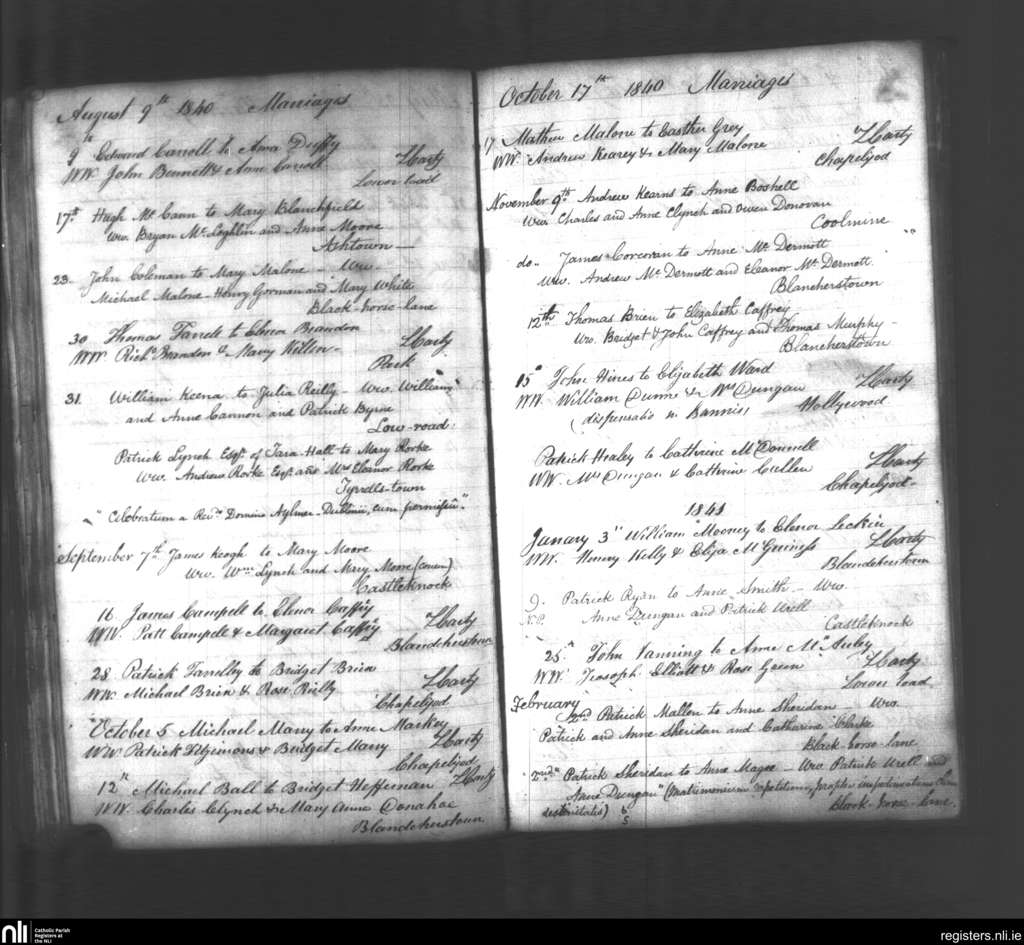 August 9th 1840 Marriages
9th Edward Carroll to Anna Duffy
WW. John Bennett & Anne Carroll
Lower road
17th Hugh Mc Cann to Mary Blanchfield
Ww. Bryan Mc Loghlin and Anne Moore
Ashtown
23. John Coleman to Mary Malone - Ww.
Michael Malone - Henry Gorman and Mary White
Black-horse-lane
30 Thomas Farrell to Brandon
WW. Richd Brandon & Mary
Park
31. William Keena to Julia Reilly - Ww. William
and Anne Cannon and Patrick Byrne
Low-road.
Patrick Lynch Esqr. of Tara-Hall to Mary Rorke
Ww. Andrew Rorke Esqr. and Mrs Eleanor Rorke
Tyrrells-town
Celebratum a Revdo Domino Aylmer - Dublinii, cum
September 7th James Keogh to Mary Moore
Ww. Wm Lynch and Mary Moore
Castleknock
16 James Campell to Elenor Caffry
WW. Patt Campell & Margaret Caffry
Blandcherstown
28 Patrick to Bridget Brien
WW. Michael Brien & Rose Reilly
Chapelizod
October 5 Michael Marry to Anne Markey
WW Patrick Fitzsimons & Bridget Marry
Chapelizod
12th Michael Ball to Bridget Heffernan
WW. Charles Clynch & Mary Anne Donahoe
Blandcherstown
October 17th 1840 Marriages
17 Mathew Malone to Easther Grey
WW. Andrew Kearey & Mary Malone
Chapelizod
November 9th Andrew Kearns to Anne Boshell
Ww. Charles and Anne Clynch and Owen Donovan
Coolmine
do.. James Corcoran to Anne Mc Dermott
Ww. Andrew Mc Dermott and Eleanor Mc Dermott.
Blancherstown
12th Thomas Brien to Elizabeth Caffrey
Ww. Bridget & John Caffrey and Thomas Murphy -
Blancherstown
15 John Hines to Elizabeth Ward
WW. William Dunne & Mrs Dungan
(dispensatio in Bannis) Hollywood
Patrick Healey to Cathrine McDonnell
WW. Mrs Dungan & Cathrine Cullen
Chapelizod
1841
January 3 William Mooney to Elenor Leckin
WW. Henry Kelly & Eliza McGuiness
Blandcherstown
9. Patrick Ryan to Anne Smith - Ww.
Anne Dungan and Patrick Urell
Castleknock
25 John Fanning to Anne
WW. Jeasoph Elliott & Rose Green
Lower road
February 2nd Patrick Mallon to Anne Sheridan - Ww.
Patrick and Anne Sheridan and Catharine Clarke
Black-horse-lane
2nd Patrick Sheridan to Anne Magee - Ww. Patrick Urell and
Anne Dungan (Matrimonium repetitum, propter
Black-horse-lane.
nli
Catholic Parish
Registers at
the NLI
registers.nli.ie